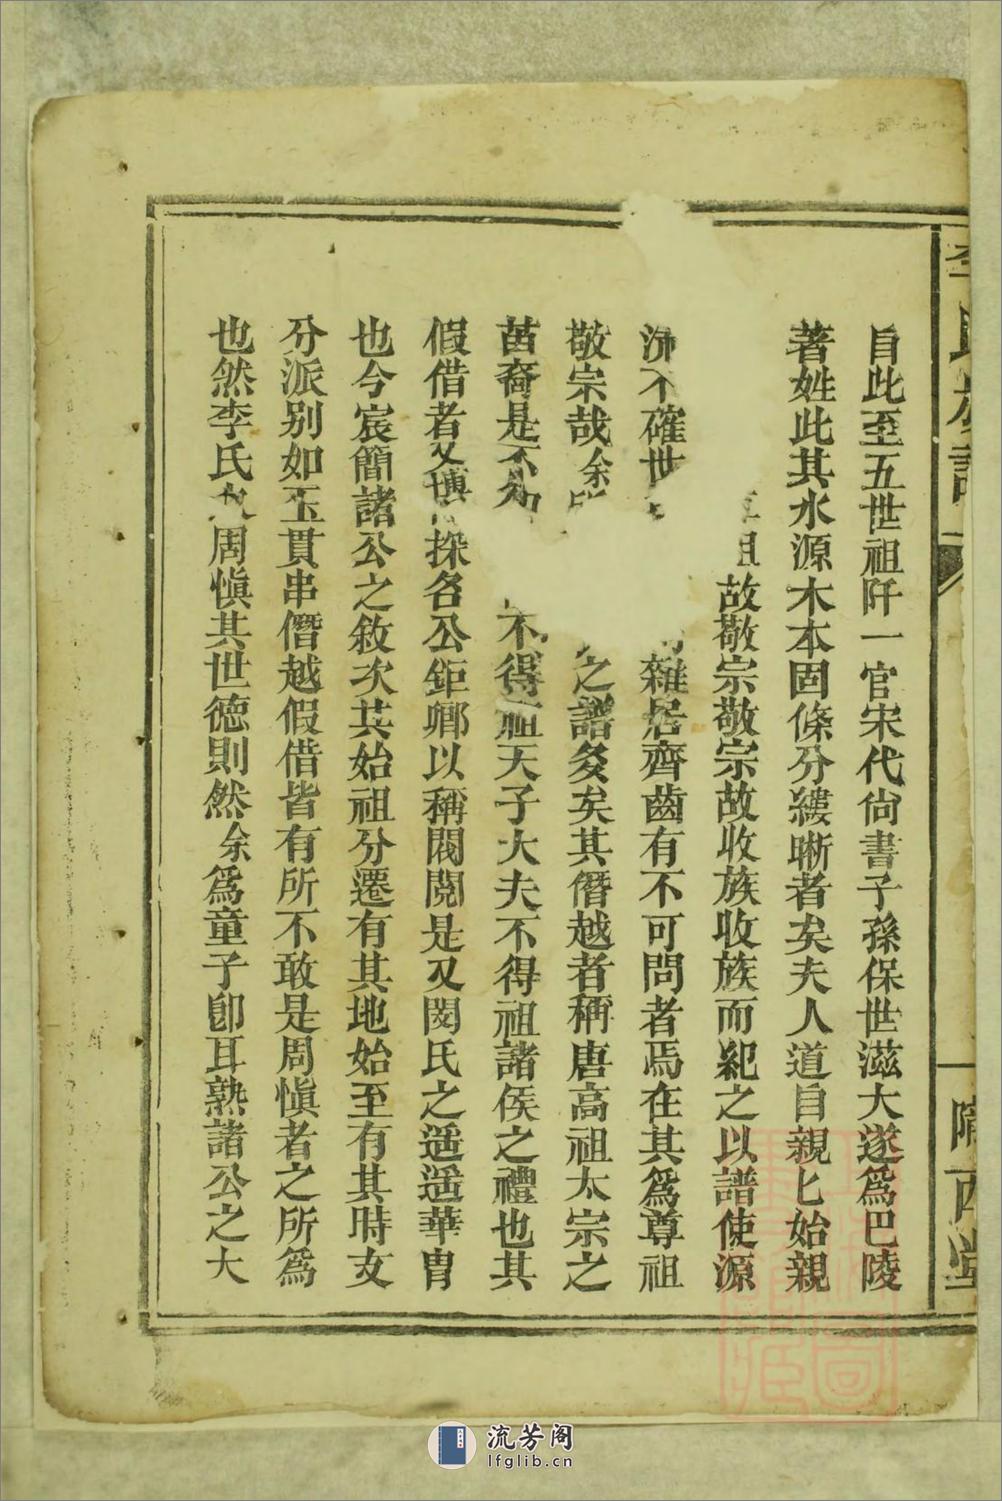 李氏族譜
隴西堂
自此至五世祖阡一官宋代尙書子孫保世滋大遂爲巴陵
著姓此其水源木本固條分縷晰者矣夫人道自親匕始親
祖故敬宗敬宗故收族收族而紀之以譜使源
不確世 雜居齊齒有不可問者焉在其爲尊祖
敬宗哉余 之譜夥矣其僭越者稱唐高祖太宗之
苗裔是不知 不得祖天子大夫不得祖諸侯之禮也其
假借者又 採名公鉅卿以稱閥閱是又閔氏之遥遥華冑
也今宸簡諸公之敘次其始祖分遷有其地始至有其時支
分派别如玉貫串僭越假借皆有所不敢是周愼者之所爲
也然李氏 周愼其世德則然余爲童子卽耳熟諸公之大
流芳阁
lfglib.cn